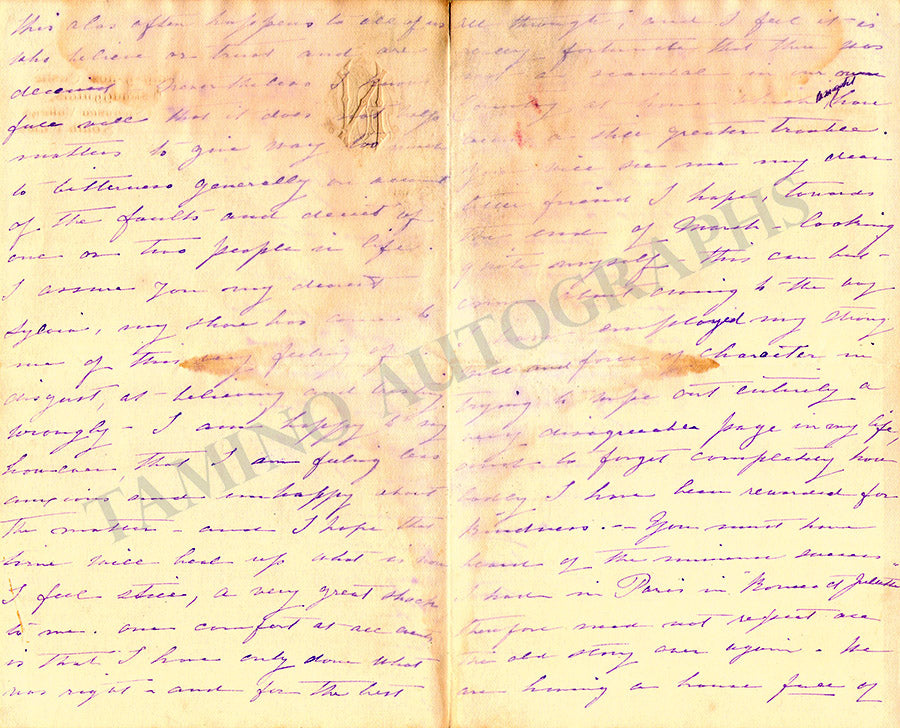 this also often happens to all of us
who believe or trust and are
deceived. Nevertheless I know
full well that it does not help
matters to give way too much
to bitterness generally on account
of the faults and deceit of
one or two people in life.
I assure you my dearest
Sylvia, my share has come to
me of this very feeling of
disgust, at believing and
wrongly - I am happy to say
however that I am feeling less
anxious and unhappy about
the matter - and I hope that
time will heal up what is now
I feel still, a very great shock
to me. One comfort at all events
is that I have only done what
was right - and for the best
all through; and I feel it is
very fortunate that there was
not a scandal in our own
country at home which might have
been a still greater trouble.
You will see me my dear
little friend I hope, towards
the end of March looking
quite myself if this can be
but owing to the way
I have employed my strong
will and force of character in
trying to wipe out entirely a
very disagreeable page in my life,
and to forget completely how
badly I have been rewarded for
kindness. - You must have
heard of the immense success
I had in Paris in "Romeo et Juliette"
therefore need not repeat all
the old story over again. We
are having a house full of
TAMINO AUTOGRAPHS